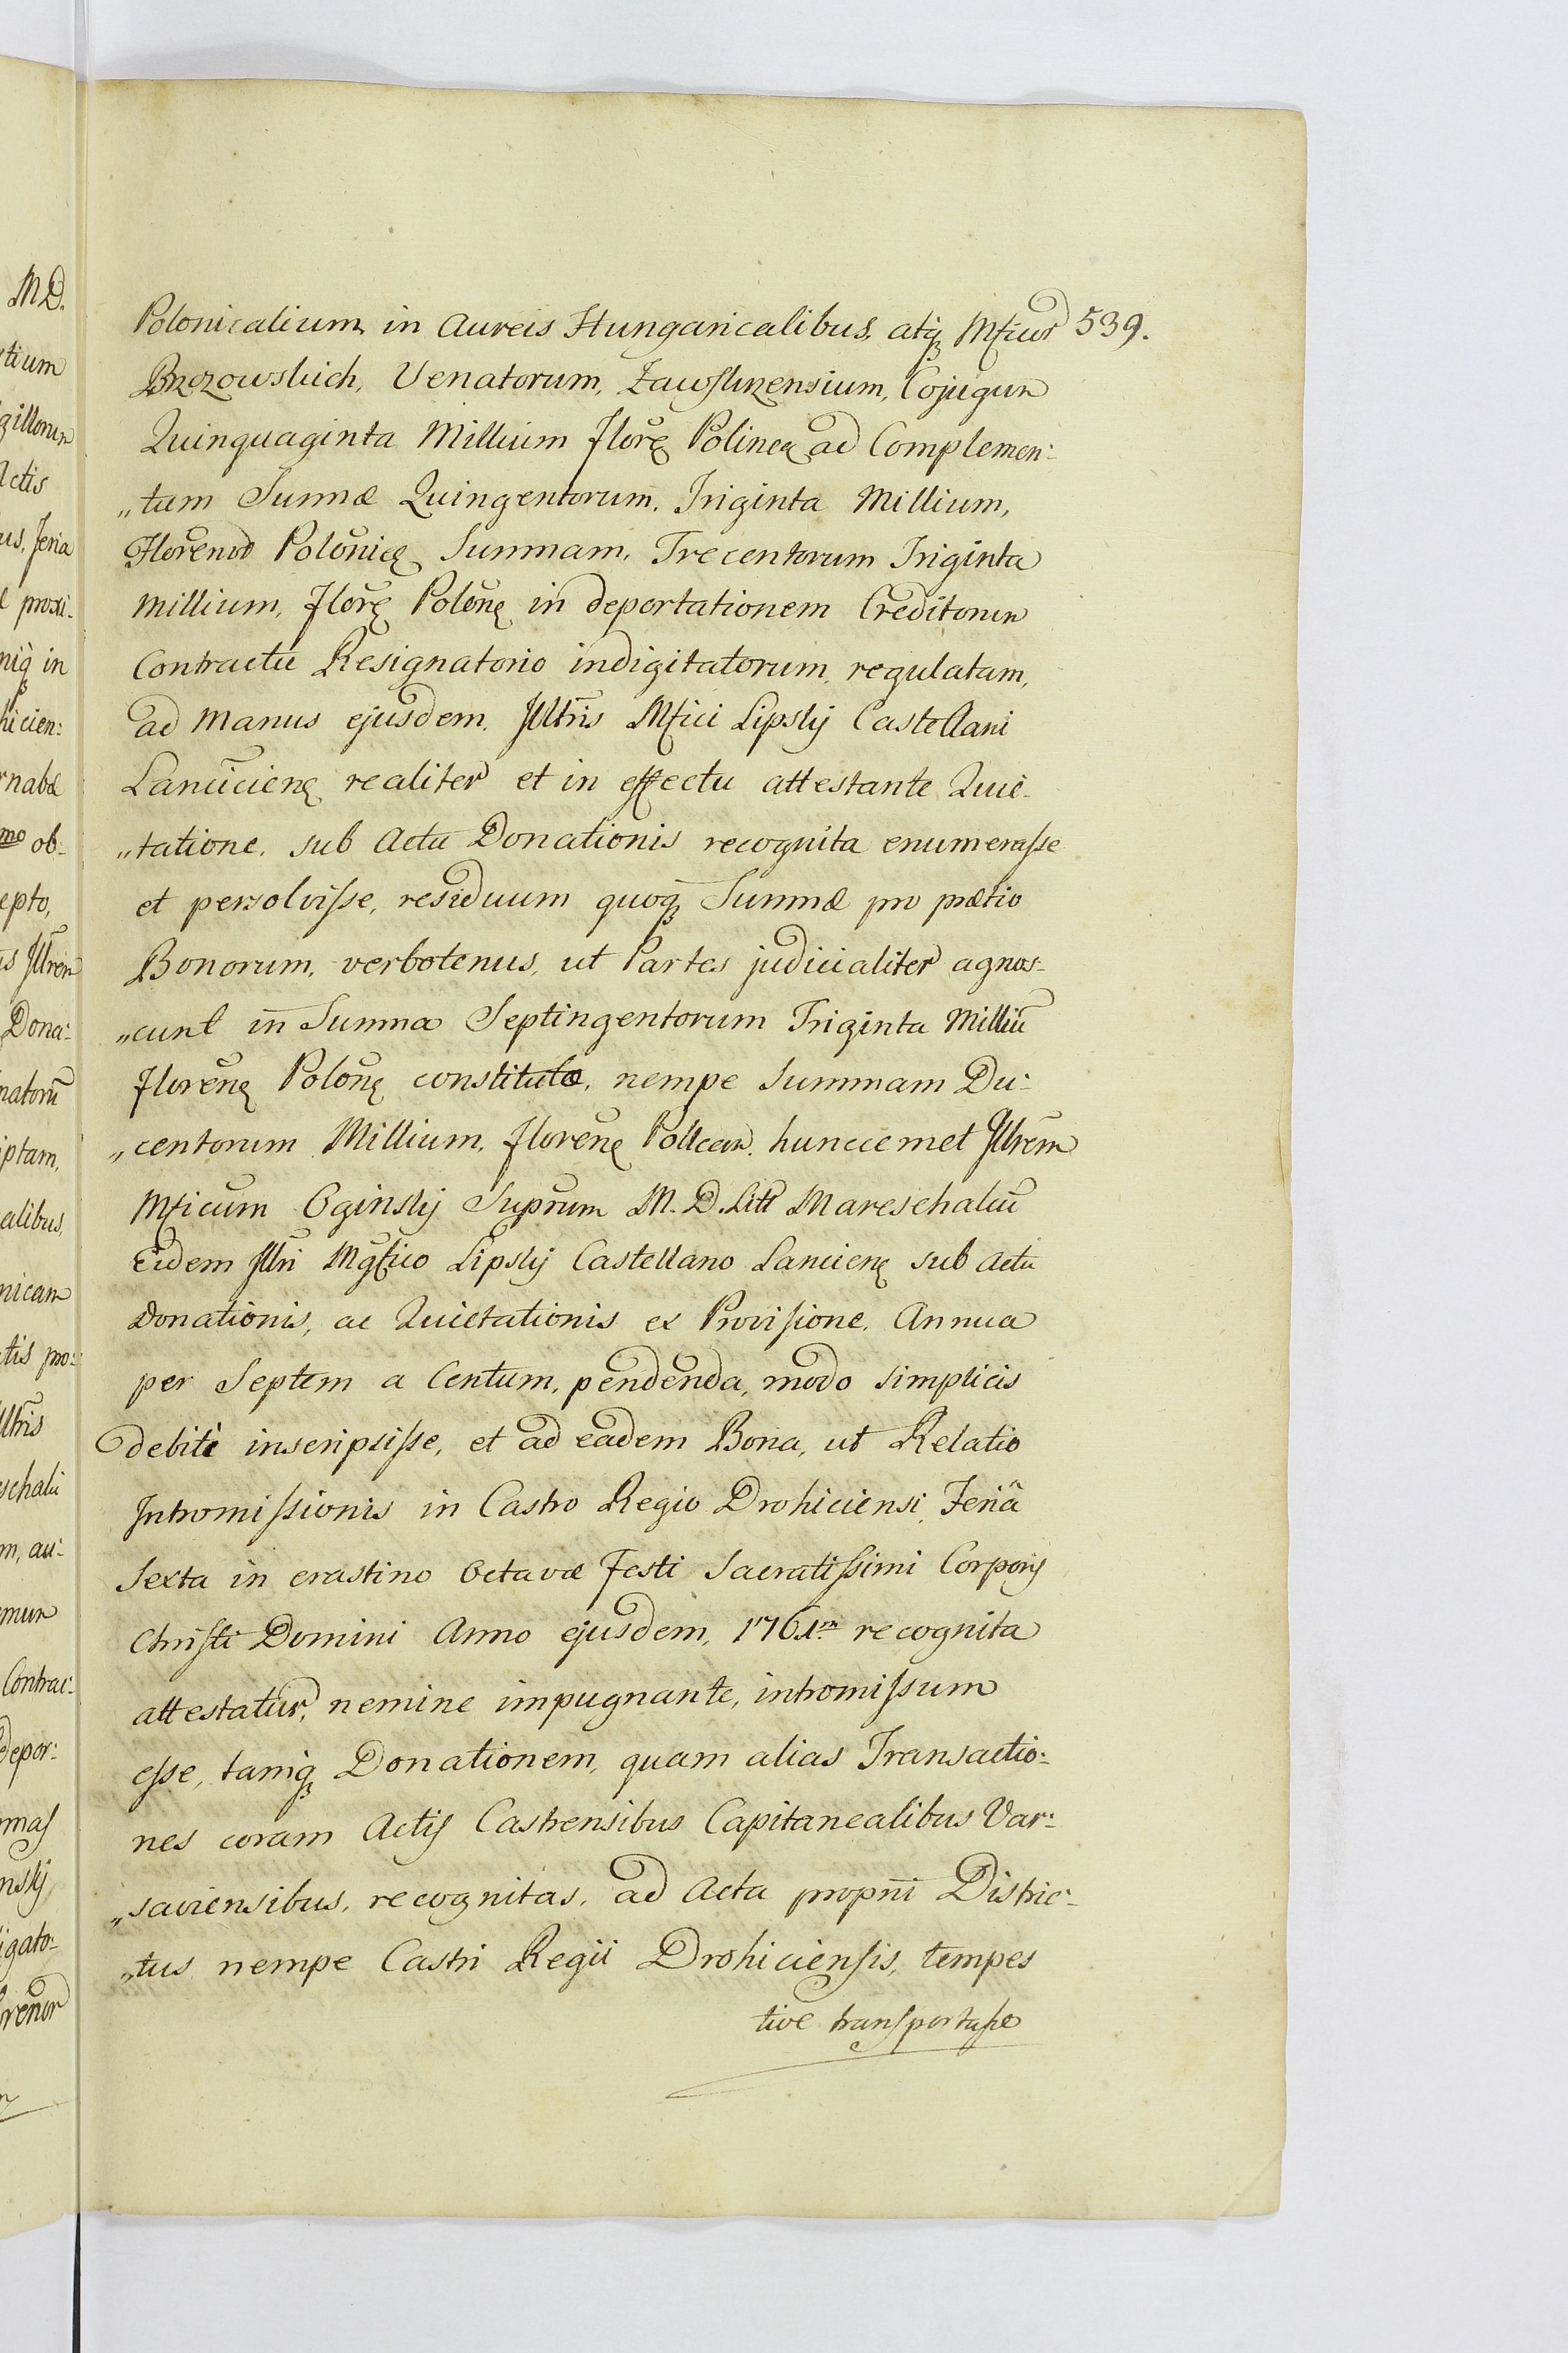 Polonicalium, in Aureis Hungaricalibus, atq₃ Mficor 539.
Brzozowskich, Venatorum, Zawskrzensium, Cojugum
Quinquaginta Millium flore Polinca ad Complemen:
„tum Summæ Quingentorum, Triginta Millium,
Florenor Polōnice Summam, Trecentorum Triginta
Millium, flore Polōne in deportationem Creditorum
Contractu Resignatorio indigitatorum, regulatam,
ad Manus ejusdem, Jlltris Mfici Lipsky Castellani
Lancicienę realiter et in effectu attestante Quie-
„tatione, sub Actu Donationis recognita enumerasse
et persolvisse, residuum quoq₃ Summæ pro prætio
Bonorum, verbotenus, ut Partes judicialiter agnos-
„cunt in Summa Septingentorum Triginta Milliū
florenę Polōnę constitutæ, nempe Summam Du:
„centorum Millium, florenę Pollcan, huncce met Jllrem
Mficum Oginsky Suprum M. D. Litt Mareschalcū
Eidem Jllri Mgfico Lipsky Castellano Lancienę sub Actu
Donationis, ac Quietationis ex Provisione, Annua
per Septem a Centum, pendenda, modo simplicis
debiti inscripsisse, et ad eadem Bona, ut Relatio
Intromissionis in Castro Regio Drohiciensi, Feriâ
Sexta in crastino Octavæ Festi Sacratissimi Corporis
Christi Domini Anno ejusdem, 1761m recognita
attestatur, nemine impugnante, intromissum
esse, tamq₃ Donationem, quam alias Transactio:
nes coram Actis Castrensibus Capitanealibus Var:
„saviensibus, recognitas, ad Acta propri Distric:
„tus nempe Castri Regii Drohiciensis, tempes
tive transportasse